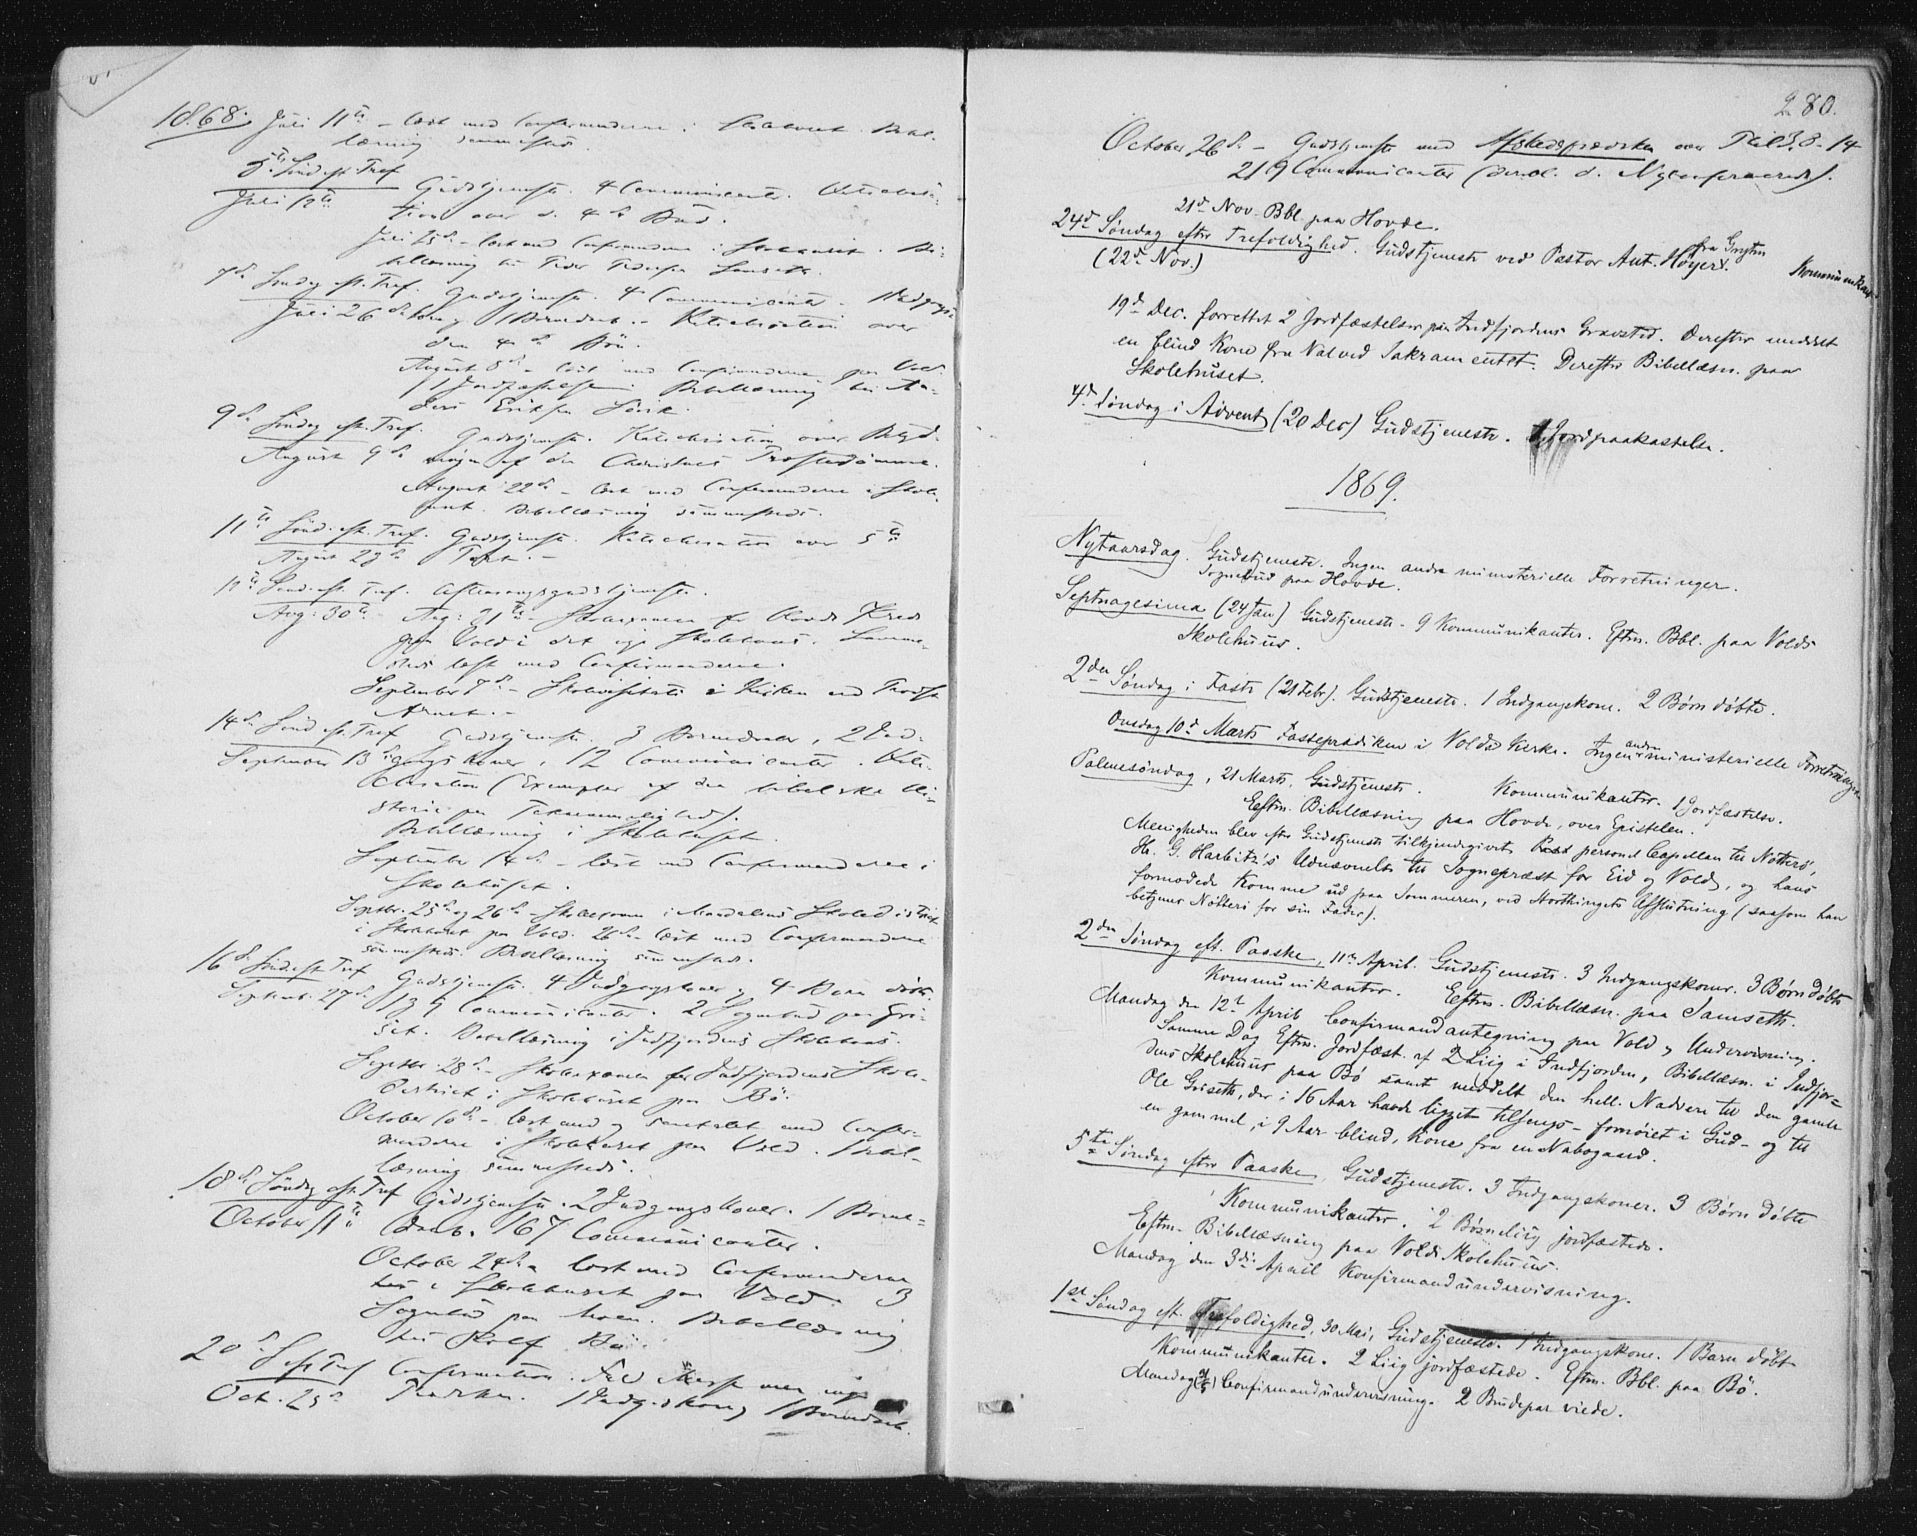 1868. Juli 11te - læst med Confirmanderne i Skolehuset. Bibel-
læsning sammesteds.
5te Sönd. eft. Tref. Gudstjeneste. 4 Communicanter. Catechisa-
Juli 12te tion over d. 4de Bud.
Juli 25de - læst med Confirmanderne i Skolehuset. Bi-
bellæsning hos Peder Pedersen Samseth.
7de Söndag eft. Tref. Gudstjeneste. 4 Communicanter. 1 Indgangs-
Juli 26de kone og 1 Barnedaab. - Katechisation over
den 4de Bön.
August 8de - læst med Confirmanderne paa Vold.
1 Jordfæstelse. Bibellæsning hos An-
ders Eriksen
9de Söndag eft. Tref. Gudstjeneste. Katechisation over
August 9de af den Christnes Troskedömme.
August 22de - læst med Confirmanderne i Skole-
huset. Bibellæsning sammesteds.
11te Sönd. eft. Tref. Gudstjeneste. Katechisation over 5te
August 23de Part. -
12te Sönd. eft. Tref. Aftensangsgudstjeneste.
Aug: 30te Aug: 21te - Skoleexamen for Volds Kreds
paa Vold i det nye Skolehuus. Samme-
steds læst med Confirmanderne.
September 7de - Skolevisitats i Kirken ved Provst
14de Sönd. eft. Tref. Gudstjeneste. 3 Barnedaaber, 2 Ind-
September 13de gangskoner, 12 Communicanter. Cate-
chisation (Exempler af den bibelske Hi-
storie paa Taknemmelighed).
Bibellæsning i Skolehuset.
September 14de - læst med Confirmanderne i
Skolehuset.
Septbr. 25de og 26de - Skoleexamen i Mandalens Skoledistrict
i Skolehuset paa Vold. 26de læst med Confirmanderne
sammesteds. Bibellæsning sammesteds.
16de Sönd. eft. Tref. Gudstjeneste. 4 Indgangskoner og 4 Børn döbte.
Septemb. 27de 139 Communicanter. 2 Sognebud paa Gri-
set. Bibellæsning i Indfjordens Skolehuus.
Septbr. 28de - Skoleexamen for Indfjordens Skole-
District i Skolehuset paa Bö.
October 10de - læst med og samtalet med Confir-
manderne i Skolehuset paa Vold. Bibel-
læsning sammesteds.
18de Söndag eft. Tref. Gudstjeneste. 2 Indgangskoner. 1 Barne-
October 11te daab. 167 Communicanter.
October 24de - læst med Confirmanderne
i Skolehuset paa Vold. 3
Sognebud paa Bibellæsning
hos Bö.
20de S. eft. Tref. Confirmation. men ingen
Oct. 25de Prædiken. 1 Indg.skone og 1 Barnedaab.
280.
October 26de - Gudstjeneste med Afskedsprædiken over Phil. 3. 8-14
219 Communicanter (derbl. d. Nyconfirmerede).
21de Nov. Bbl paa Hovde.
24de Søndag efter Trefoldighed. Gudstjeneste ved Pastor Ant. Høyer fra Grytten
(22de Nov.) Kommunikanter
19de Dec. forrettet 2 Jordfæstelser paa Indfjordens Gravsted. Derefter meddelt
en blind Kone fra Nalved Sakramentet. Derefter Bibellæsn. paa
Skolehuset.
4de Søndag i Advent (20 Dec) Gudstjeneste. 1 Jordpaakastelse.
1869.
Nytaarsdag. Gudstjeneste. Ingen andre ministerielle Forretninger.
Sognebud paa Hovde.
Septuagesima (24 Jan) Gudstjeneste. 9 Kommunikanter. Eftm. Bbl. paa Volds
Skolehuus.
2den Søndag i Faste (21 Febr). Gudstjeneste. 1 Indgangskone. 2 Børn døbte.
Onsdag 10de Marts Fasteprædiken i Volds Kirke. Ingen andre ministerielle Forretninger
Palmesøndag, 21 Marts, Gudstjeneste. Kommunikanter. 1 Jordfæstelse.
Eftm. Bibellæsning paa Hovde, over Epistelen.
Menigheden blev efter Gudstjeneste tilkjendegivet Past personel Capellan til Nøtterø,
Hr. G. Harbitz's Udnævnelse til Sognepræst for Eid og Vold, og hans
formodede Komme ud paa Sommeren, ved Storthingets Afslutning (saasom han
betjener Nøtterø for sin Fader).
2den Søndag eft. Paaske, 11te April. Gudstjeneste. 3 Indgangskoner. 3 Børn døbte
Kommunikanter. Eftm. Bibellæsn. paa Samseth.
Mandag den 12te April Confirmandantegning paa Vold og Undervisning.
Samme Dag Eftm. Jordfæst. af 2 Liig i Indfjorden, Bibellæsn. i Indfjor-
dens Skolehuus paa Bø samt meddelt den hell. Nadvere til den gamle
Ole Griseth, der i 16 Aar havde ligget tilsengs - fornøiet i Gud - og til
en gammel, i 9 Aar blind, Kone fra en Nabogaard.
5te Søndag efter Paaske, Gudstjeneste. 3 Indgangskoner. 3 Børn døbte
Kommunikanter. 2 Børneliig jordfæstede.
Eftm. Bibellæsning paa Volds Skolehuus.
Mandag den 3die April Konfirmandundervisning.
1ste Søndag eft. Trefoldighed, 30 Mai, Gudstjeneste. 1 Indgangskone. 1 Barn døbt
Kommunikanter. 2 Liig jordfæstede. Eftm. Bbl. paa Bø.
Mandag (31/5) Confirmandundervisning. 2 Brudepar viede.